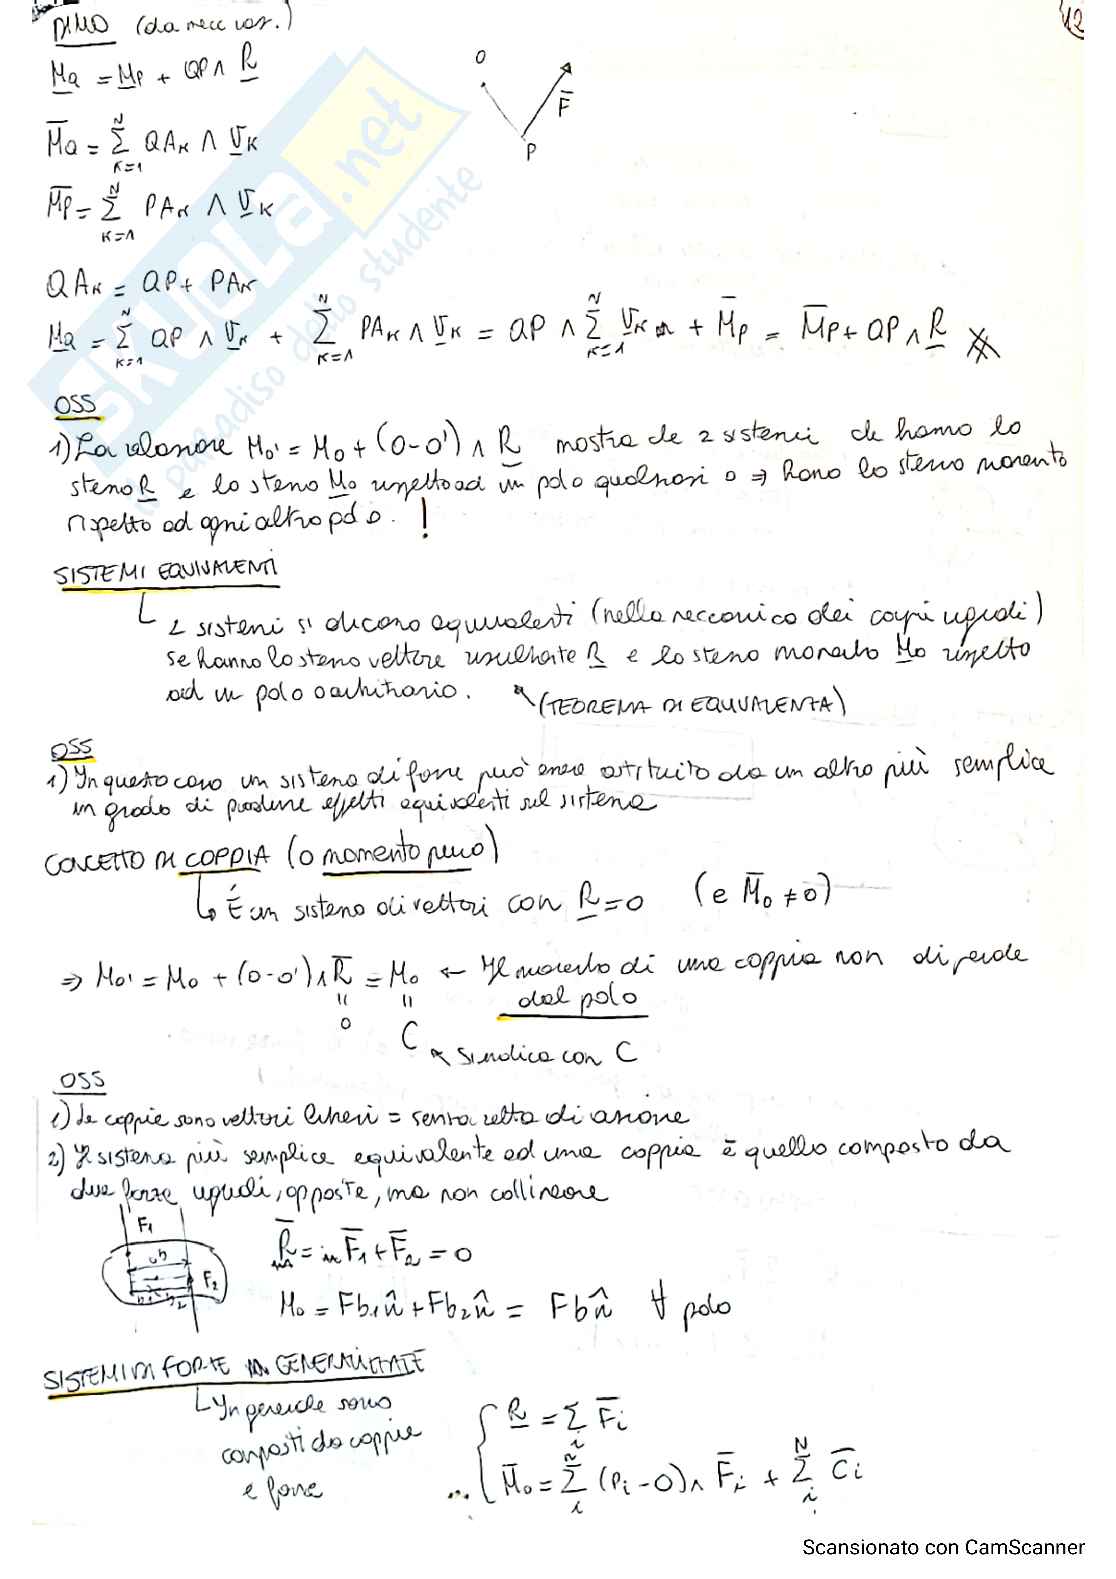 12
DIMO (da mecc vor.)
Ma = Mp + QP ∧ R
O
F
P
Ma = Σ QAk ∧ Vk
N
K=1
Mp = Σ PAk ∧ Vk
N
K=1
QAk = QP + PAk
Ma = Σ QP ∧ Vk + Σ PAk ∧ Vk = QP ∧ Σ Vk + Mp = Mp + QP ∧ R
N K=1 N K=1 N K=1
OSS
1) La relazione Mo' = Mo + (O-O') ∧ R mostra che 2 sistemi che hanno lo
stesso R e lo stesso Mo rispetto ad un polo qualsiasi O ⇒ hanno lo stesso momento
rispetto ad ogni altro polo. !
SISTEMI EQUIVALENTI
2 sistemi si dicono equivalenti (nella meccanica dei corpi rigidi)
se hanno lo stesso vettore risultante R e lo stesso momento Mo rispetto
ad un polo O arbitrario. (TEOREMA DI EQUIVALENZA)
OSS
1) In questo caso un sistema di forze può essere sostituito da un altro più semplice
in grado di produrre effetti equivalenti sul sistema
CONCETTO DI COPPIA (o momento puro)
È un sistema di vettori con R=0 (e Mo ≠ 0)
⇒ Mo' = Mo + (O-O') ∧ R = Mo ← Il momento di una coppia non dipende
dal polo
"
0
"
C
Si indica con C
OSS
1) Le coppie sono vettori liberi = senza retta di azione
2) Il sistema più semplice equivalente ad una coppia è quello composto da
due forze uguali, opposte, ma non collineare
F1
b
F2
b1 b2
R = F1 + F2 = 0
Mo = Fb1n̂ + Fb2n̂ = Fbn̂ ∀ polo
SISTEMI DI FORZE IN GENERALITATE
In generale sono
composti da coppie
e forze
R = Σ Fi
i
... Mo = Σ (Pi-O) ∧ Fi + Σ Ci
n i N i
SKUOLA.net
il paradiso dello studente
Scansionato con CamScanner